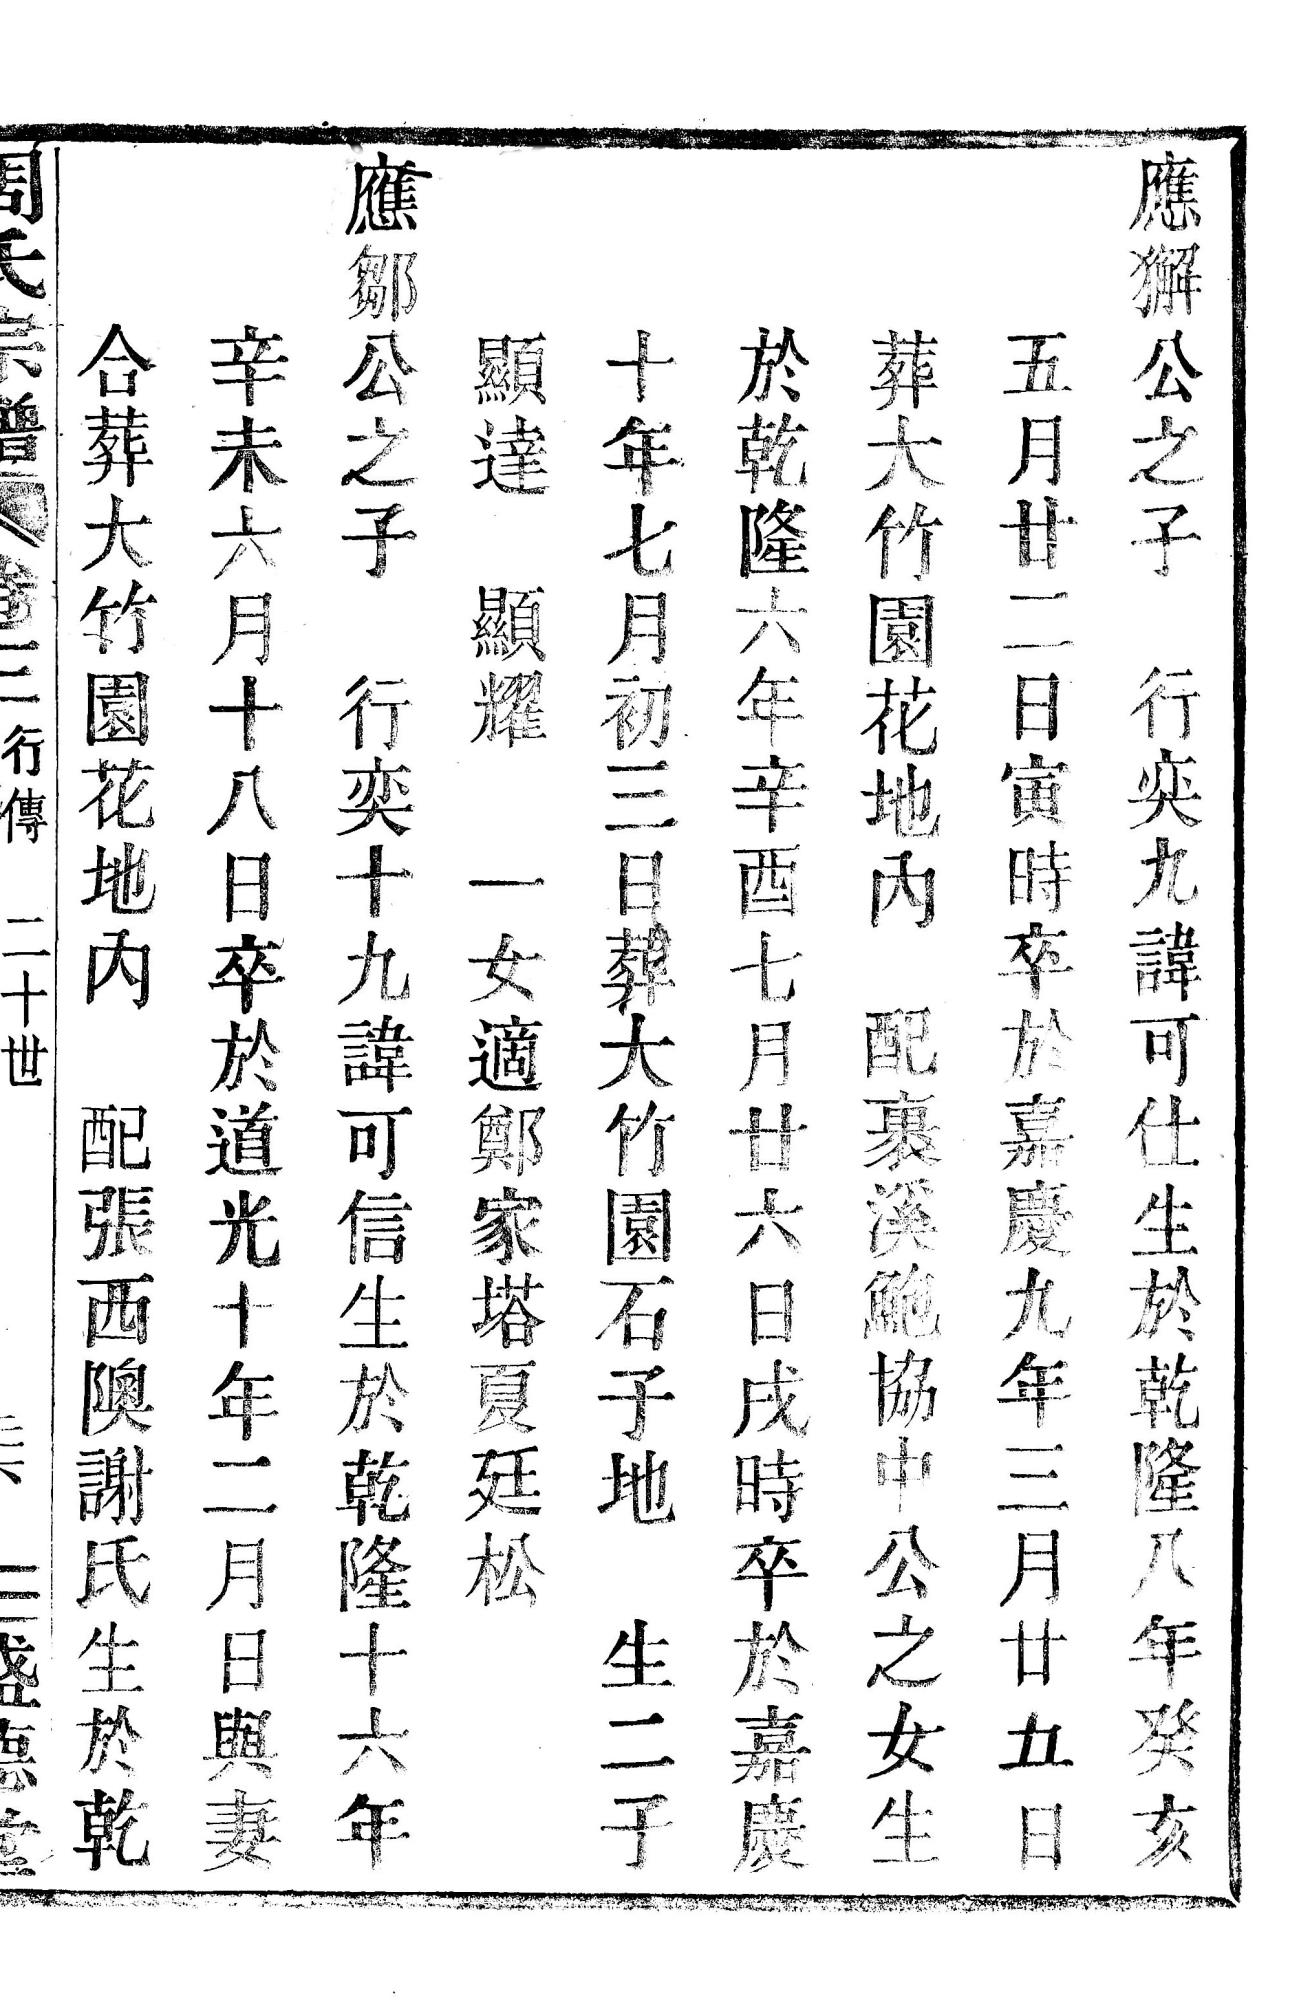 應獬公之子　行奕九諱可仕生於乾隆八年癸亥
五月廿二日寅時卒於嘉慶九年三月廿五日
葬大竹園花地內　配裹溪鮑協中公之女生
於乾隆六年辛酉七月廿六日戌時卒於嘉慶
十年七月初三日葬大竹園石子地　生二子
顯達　顯耀　一女適鄭家塔夏廷松
應鄒公之子　行奕十九諱可信生於乾隆十六年
辛未六月十八日卒於道光十年二月日與妻
合葬大竹園花地內　配張西隩謝氏生於乾
周氏宗譜　卷三　行傳　二十世　盛德堂